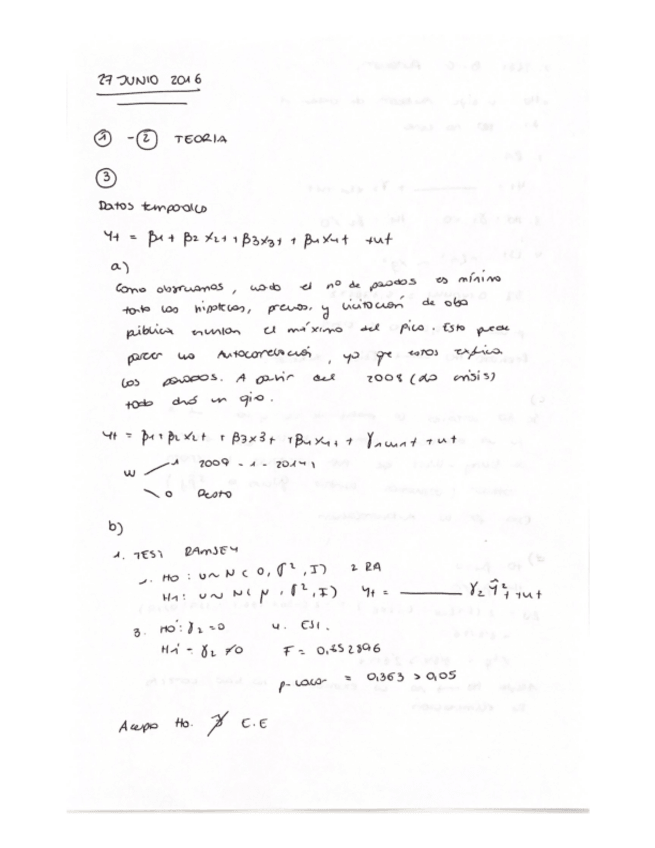 27 JUNIO 2016
① - ② TEORIA
③
Datos temporales
Yt = β1 + β2 X2t + β3X3t + β4X4t + ut
a)
Como observamos, cuando el nº de parados es mínimo
tanto las hipotecas, precios, y licitación de obra
pública el máximo del pico. Esto puede
una Autocorrelación, ya que estos explica
los parados. A partir del 2008 (la crisis)
todo da un giro.
Yt = β1 + β2 X2t + β3X3t + β4X4t + γ1w1t + ut
w 1 2009 - 1 - 2014:1
0 Resto
b)
1. TEST RAMSEY
1. H0 : u ~ N ( 0, σ², I) 2 RA
H1: u ~ N( μ, σ², I) Yt = ——— γ2 Ŷ²t + ut
3. H0: γ2 = 0 4. ESI.
H1 = γ2 ≠ 0 F =
p-valor = 0,363 > 0,05
Acepto H0. ∄ E.E